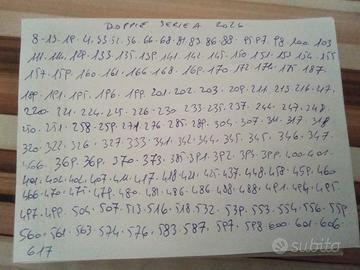 DOPPIE SERIE A 2024
8-13-19-4
111.114.129.133.135.139.141.142.145.150.151.153.154.155
157.159.160.161.166.168.169.170.172.174.175.187
189.191.195.196.199.201.202.203.209.211.213.216.217
220.221.224.225.226.230.233.235.237.246.247.248
250.251.258.259.271.276.285.289.304.307.311.317.318
320.322.326.327.333.341.342.344.345.345.346.347
366.369.369.370.373.385.391.392.393.399.400.401
401.402.402.407.411.417.418.421.425.437.448.458.459.460
466.470.475.479.480.481.486.486.488.488.491.494.495
497.499.504.507.513.516.518.532.539.553.554.556.559
560.561.563.574.576.583.587.597.598.600.601.606
617
subito